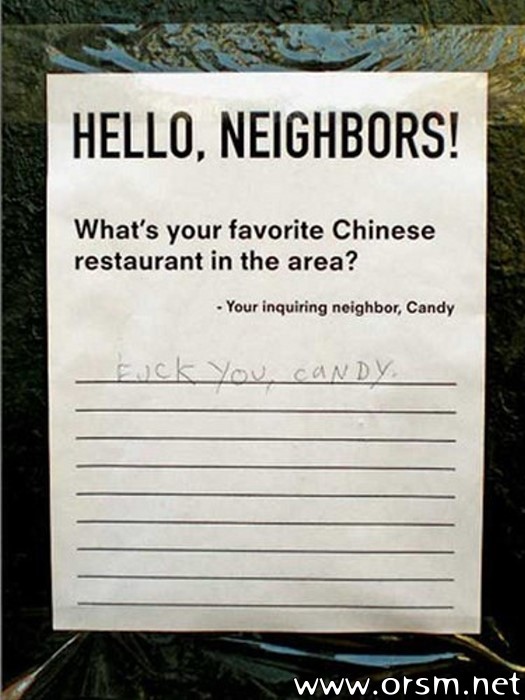 HELLO, NEIGHBORS!
What's your favorite Chinese
restaurant in the area?
- Your inquiring neighbor, Candy
FUCK YOU, CANDY.
www.orsm.net